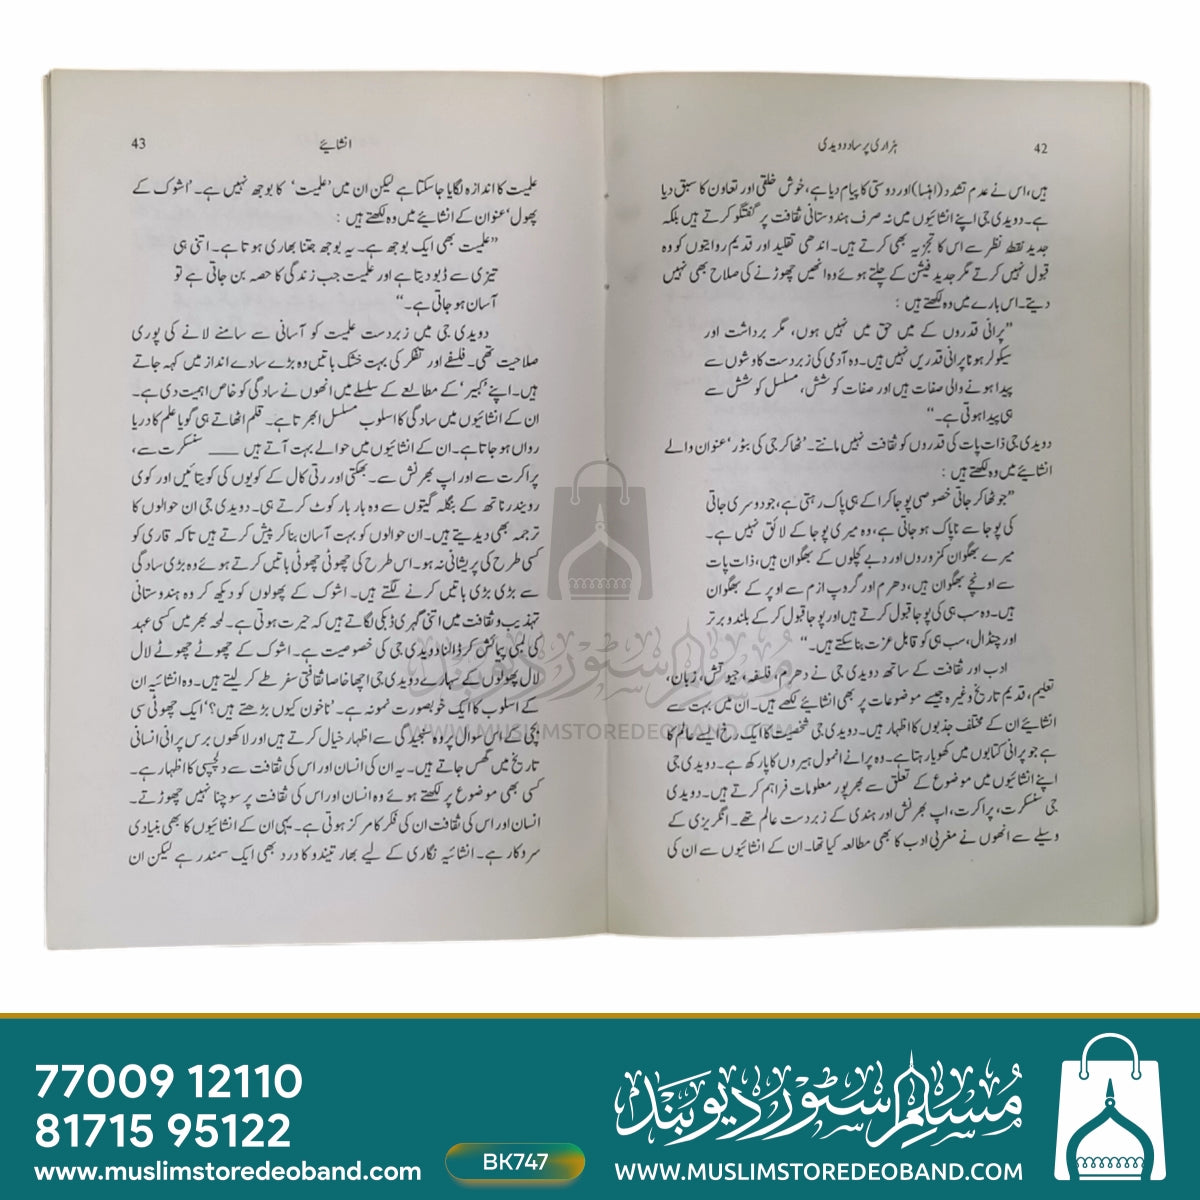 42
ہزاری پرساد دویدی
ہیں، اس نے عدم تشدد (اہنسا) اور دوستی کا پیام دیا ہے، خوش خلقی اور تعاون کا سبق دیا
ہے۔ دویدی جی اپنے انشائیوں میں نہ صرف ہندوستانی ثقافت پر گفتگو کرتے ہیں بلکہ
جدید نقطۂ نظر سے اس کا تجزیہ بھی کرتے ہیں۔ اندھی تقلید اور قدیم روایتوں کو وہ
قبول نہیں کرتے مگر جدید فیشن کے چلتے ہوئے وہ انھیں چھوڑنے کی صلاح بھی نہیں
دیتے۔ اس بارے میں وہ لکھتے ہیں :
”پرانی قدروں کے میں حق میں نہیں ہوں، مگر برداشت اور
سیکولر ہونا پرانی قدریں نہیں ہیں۔ وہ آدمی کی زبردست کاوشوں سے
پیدا ہونے والی صفات ہیں اور صفات کوشش، مسلسل کوشش سے
ہی پیدا ہوتی ہے۔“
دویدی جی ذات پات کی قدروں کو ثقافت نہیں مانتے۔ ’ٹھاکر جی کی بٹور‘ عنوان والے
انشائیے میں وہ لکھتے ہیں :
”جو ٹھاکر جاتی خصوصی پوجا کرا کے ہی پاک رہتی ہے، جو دوسری جاتی
کی پوجا سے ناپاک ہو جاتی ہے، وہ میری پوجا کے لائق نہیں ہے۔
میرے بھگوان کمزوروں اور دبے کچلوں کے بھگوان ہیں، ذات پات
سے اونچے بھگوان ہیں، دھرم اور گروپ ازم سے اوپر کے بھگوان
ہیں۔ وہ سب ہی کی پوجا قبول کرتے ہیں اور پوجا قبول کر کے بلند و برتر
اور چنڈال، سب ہی کو قابل عزت بنا سکتے ہیں۔“
ادب اور ثقافت کے ساتھ دویدی جی نے دھرم، فلسفہ، جیوتش، زبان،
تعلیم، قدیم تاریخ وغیرہ جیسے موضوعات پر بھی انشائیے لکھے ہیں۔ ان میں بہت سے
انشائیے ان کے مختلف جذبوں کا اظہار ہیں۔ دویدی جی شخصیت کا ایک رخ ایسے عالم کا
ہے جو پرانی کتابوں میں کھویا رہتا ہے۔ وہ پرانے انمول ہیروں کا پارکھ ہے۔ دویدی جی
اپنے انشائیوں میں موضوع کے تعلق سے بھرپور معلومات فراہم کرتے ہیں۔ دویدی
جی سنسکرت، پراکرت، اپ بھرنش اور ہندی کے زبردست عالم تھے۔ انگریزی کے
وسیلے سے انھوں نے مغربی ادب کا بھی مطالعہ کیا تھا۔ ان کے انشائیوں سے ان کی
انشائیے
43
علمیت کا اندازہ لگایا جا سکتا ہے لیکن ان میں ’علمیت‘ کا بوجھ نہیں ہے۔ ’اشوک کے
پھول‘ عنوان کے انشائیے میں وہ لکھتے ہیں :
”علمیت بھی ایک بوجھ ہے۔ یہ بوجھ جتنا بھاری ہوتا ہے۔ اتنی ہی
تیزی سے ڈبو دیتا ہے اور علمیت جب زندگی کا حصہ بن جاتی ہے تو
آسان ہو جاتی ہے۔“
دویدی جی میں زبردست علمیت کو آسانی سے سامنے لانے کی پوری
صلاحیت تھی۔ فلسفے اور تفکر کی بہت خشک باتیں وہ بڑے سادے انداز میں کہہ جاتے
ہیں۔ اپنے ’کبیر‘ کے مطالعے کے سلسلے میں انھوں نے سادگی کو خاص اہمیت دی ہے۔
ان کے انشائیوں میں سادگی کا اسلوب مسلسل ابھرتا ہے۔ قلم اٹھاتے ہی گویا علم کا دریا
رواں ہو جاتا ہے۔ ان کے انشائیوں میں حوالے بہت آتے ہیں ـــــ سنسکرت سے،
پراکرت سے اور اپ بھرنش سے۔ بھکتی اور رتی کال کے کویوں کی کویتائیں اور کوی
رویندر ناتھ کے بنگلہ گیتوں سے وہ بار بار کوٹ کرتے ہی۔ دویدی جی ان حوالوں کا
ترجمہ بھی دیدیتے ہیں۔ ان حوالوں کو بہت آسان بنا کر پیش کرتے ہیں تاکہ قاری کو
کسی طرح کی پریشانی نہ ہو۔ اس طرح کی چھوٹی چھوٹی باتیں کرتے ہوئے وہ بڑی سادگی
سے بڑی بڑی باتیں کرنے لگتے ہیں۔ اشوک کے پھولوں کو دیکھ کر وہ ہندوستانی
تہذیب و ثقافت میں اتنی گہری ڈبکی لگاتے ہیں کہ حیرت ہوتی ہے۔ لمحہ بھر میں کسی عہد
کی لمبی پیمائش کر ڈالنا دویدی جی کی خصوصیت ہے۔ اشوک کے چھوٹے چھوٹے لال
لال پھولوں کے سہارے دویدی جی اچھا خاصا ثقافتی سفر طے کر لیتے ہیں۔ وہ انشائیہ ان
کے اسلوب کا ایک خوبصورت نمونہ ہے۔ ’ناخون کیوں بڑھتے ہیں؟‘ ایک چھوٹی سی
بچی کے اس سوال پر وہ سنجیدگی سے اظہار خیال کرتے ہیں اور لاکھوں برس پرانی انسانی
تاریخ میں گھس جاتے ہیں۔ یہ ان کی انسان اور اس کی ثقافت سے دلچسپی کا اظہار ہے۔
کسی بھی موضوع پر لکھتے ہوئے وہ انسان اور اس کی ثقافت پر سوچنا نہیں چھوڑتے۔
انسان اور اس کی ثقافت ان کی فکر کا مرکز ہوتی ہے۔ یہی ان کے انشائیوں کا بھی بنیادی
سروکار ہے۔ انشائیہ نگاری کے لیے بھارتیندو کا درد بھی ایک سمندر ہے لیکن ان
مسلم سٹور دیوبند
WWW.MUSLIMSTOREDEOBAND.COM
77009 12110
81715 95122
www.muslimstoredeoband.com
BK747
مسلم سٹور دیوبند
WWW.MUSLIMSTOREDEOBAND.COM